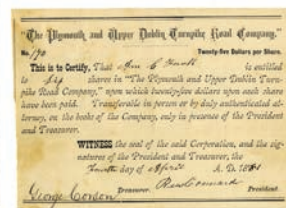 "The Plymouth and Upper Dublin Turnpike Road Company,"
No. 170 Twenty-five Dollars per Share.
This is to Certify, That is entitled
to six shares in "The Plymouth and Upper Dublin Turn-
pike Road Company," upon which twenty-five dollars upon each share
have been paid. Transferable in person or by duly authenticated at-
torney, on the books of the Company, only in presence of the President
and Treasurer.
WITNESS the seal of the said Corporation, and the sig-
natures of the President and Treasurer, the
Fourth day of April A. D. 1881
George Corson Treasurer. President.